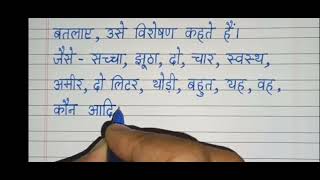 बतलाए, उसे विशेषण कहते हैं।
जैसे- सच्चा, झूठा, दो, चार, स्वस्थ,
अमीर, दो लिटर, थोड़ी, बहुत, यह, वह,
कौन आदि